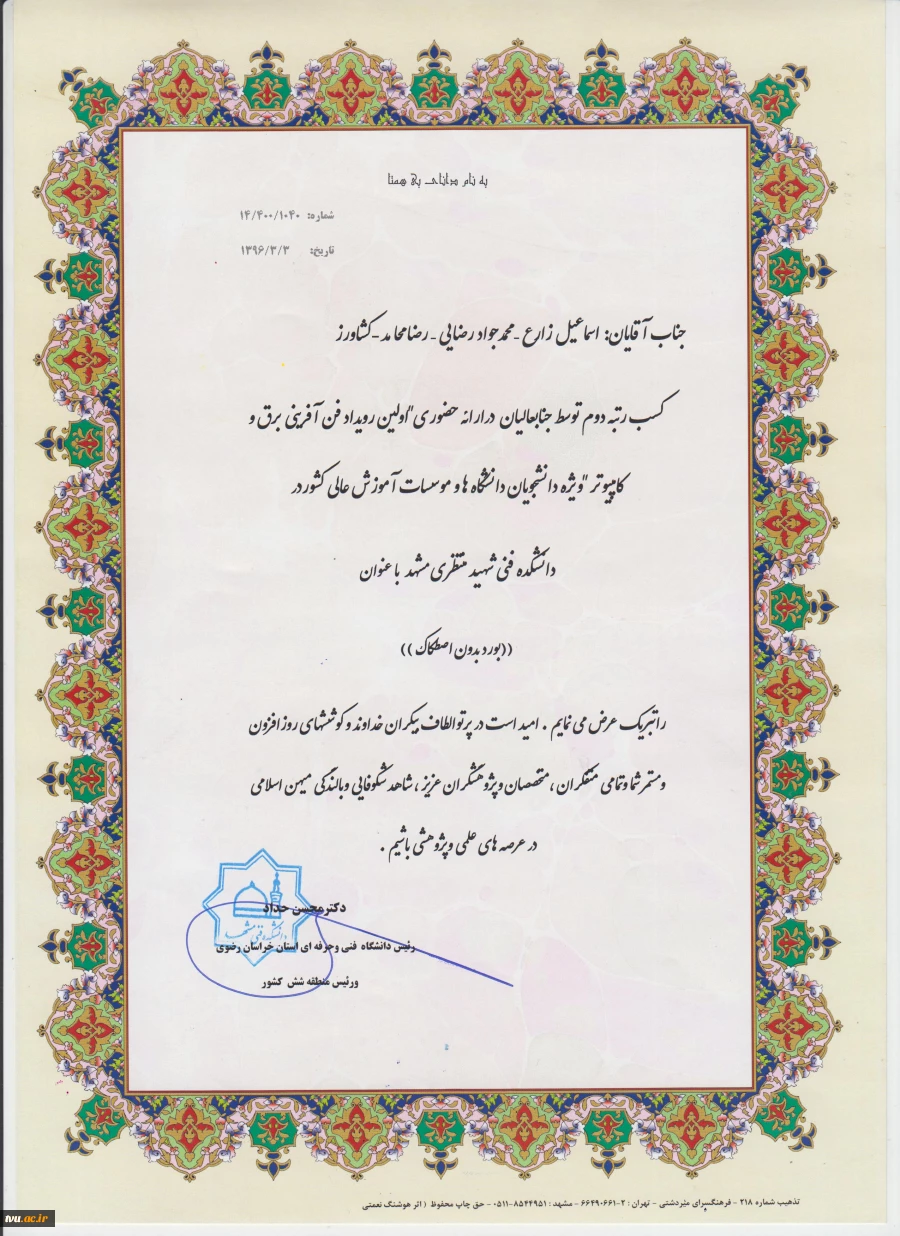 به نام دانای بی همتا
شماره: ۱۴/۴۰۰/۱۰۴۰
تاریخ: ۱۳۹۶/۳/۳
جناب آقایان: اسماعیل زارع - محمدجواد رضایی - رضا محامد - کشاورز
کسب رتبه دوم توسط جنابعالیان درارائه حضوری "اولین رویداد فن آفرینی برق و
کامپیوتر" ویژه دانشجویان دانشگاه ها و موسسات آموزش عالی کشور در
دانشکده فنی شهید منتظری مشهد با عنوان
((بورد بدون اصطکاک))
را تبریک عرض می نمایم . امید است در پرتو الطاف بیکران خداوند و کوششهای روز افزون
و مستمر شما و تمامی متفکران ، متخصصان و پژوهشگران عزیز ، شاهد شکوفایی و بالندگی میهن اسلامی
در عرصه های علمی و پژوهشی باشیم .
دکتر محسن حداد
دانشکده فنی مشهد
رئیس دانشگاه فنی وحرفه ای استان خراسان رضوی
ورئیس منطقه شش کشور
تذهیب شماره ۲۱۸ - فرهنگسرای میردشتی - تهران : ۲-۶۶۴۹۰۶۶۱ - مشهد : ۸۵۴۴۹۵۱-۰۵۱۱ - حق چاپ محفوظ ( اثر هوشنگ نعمتی
tvu.ac.ir